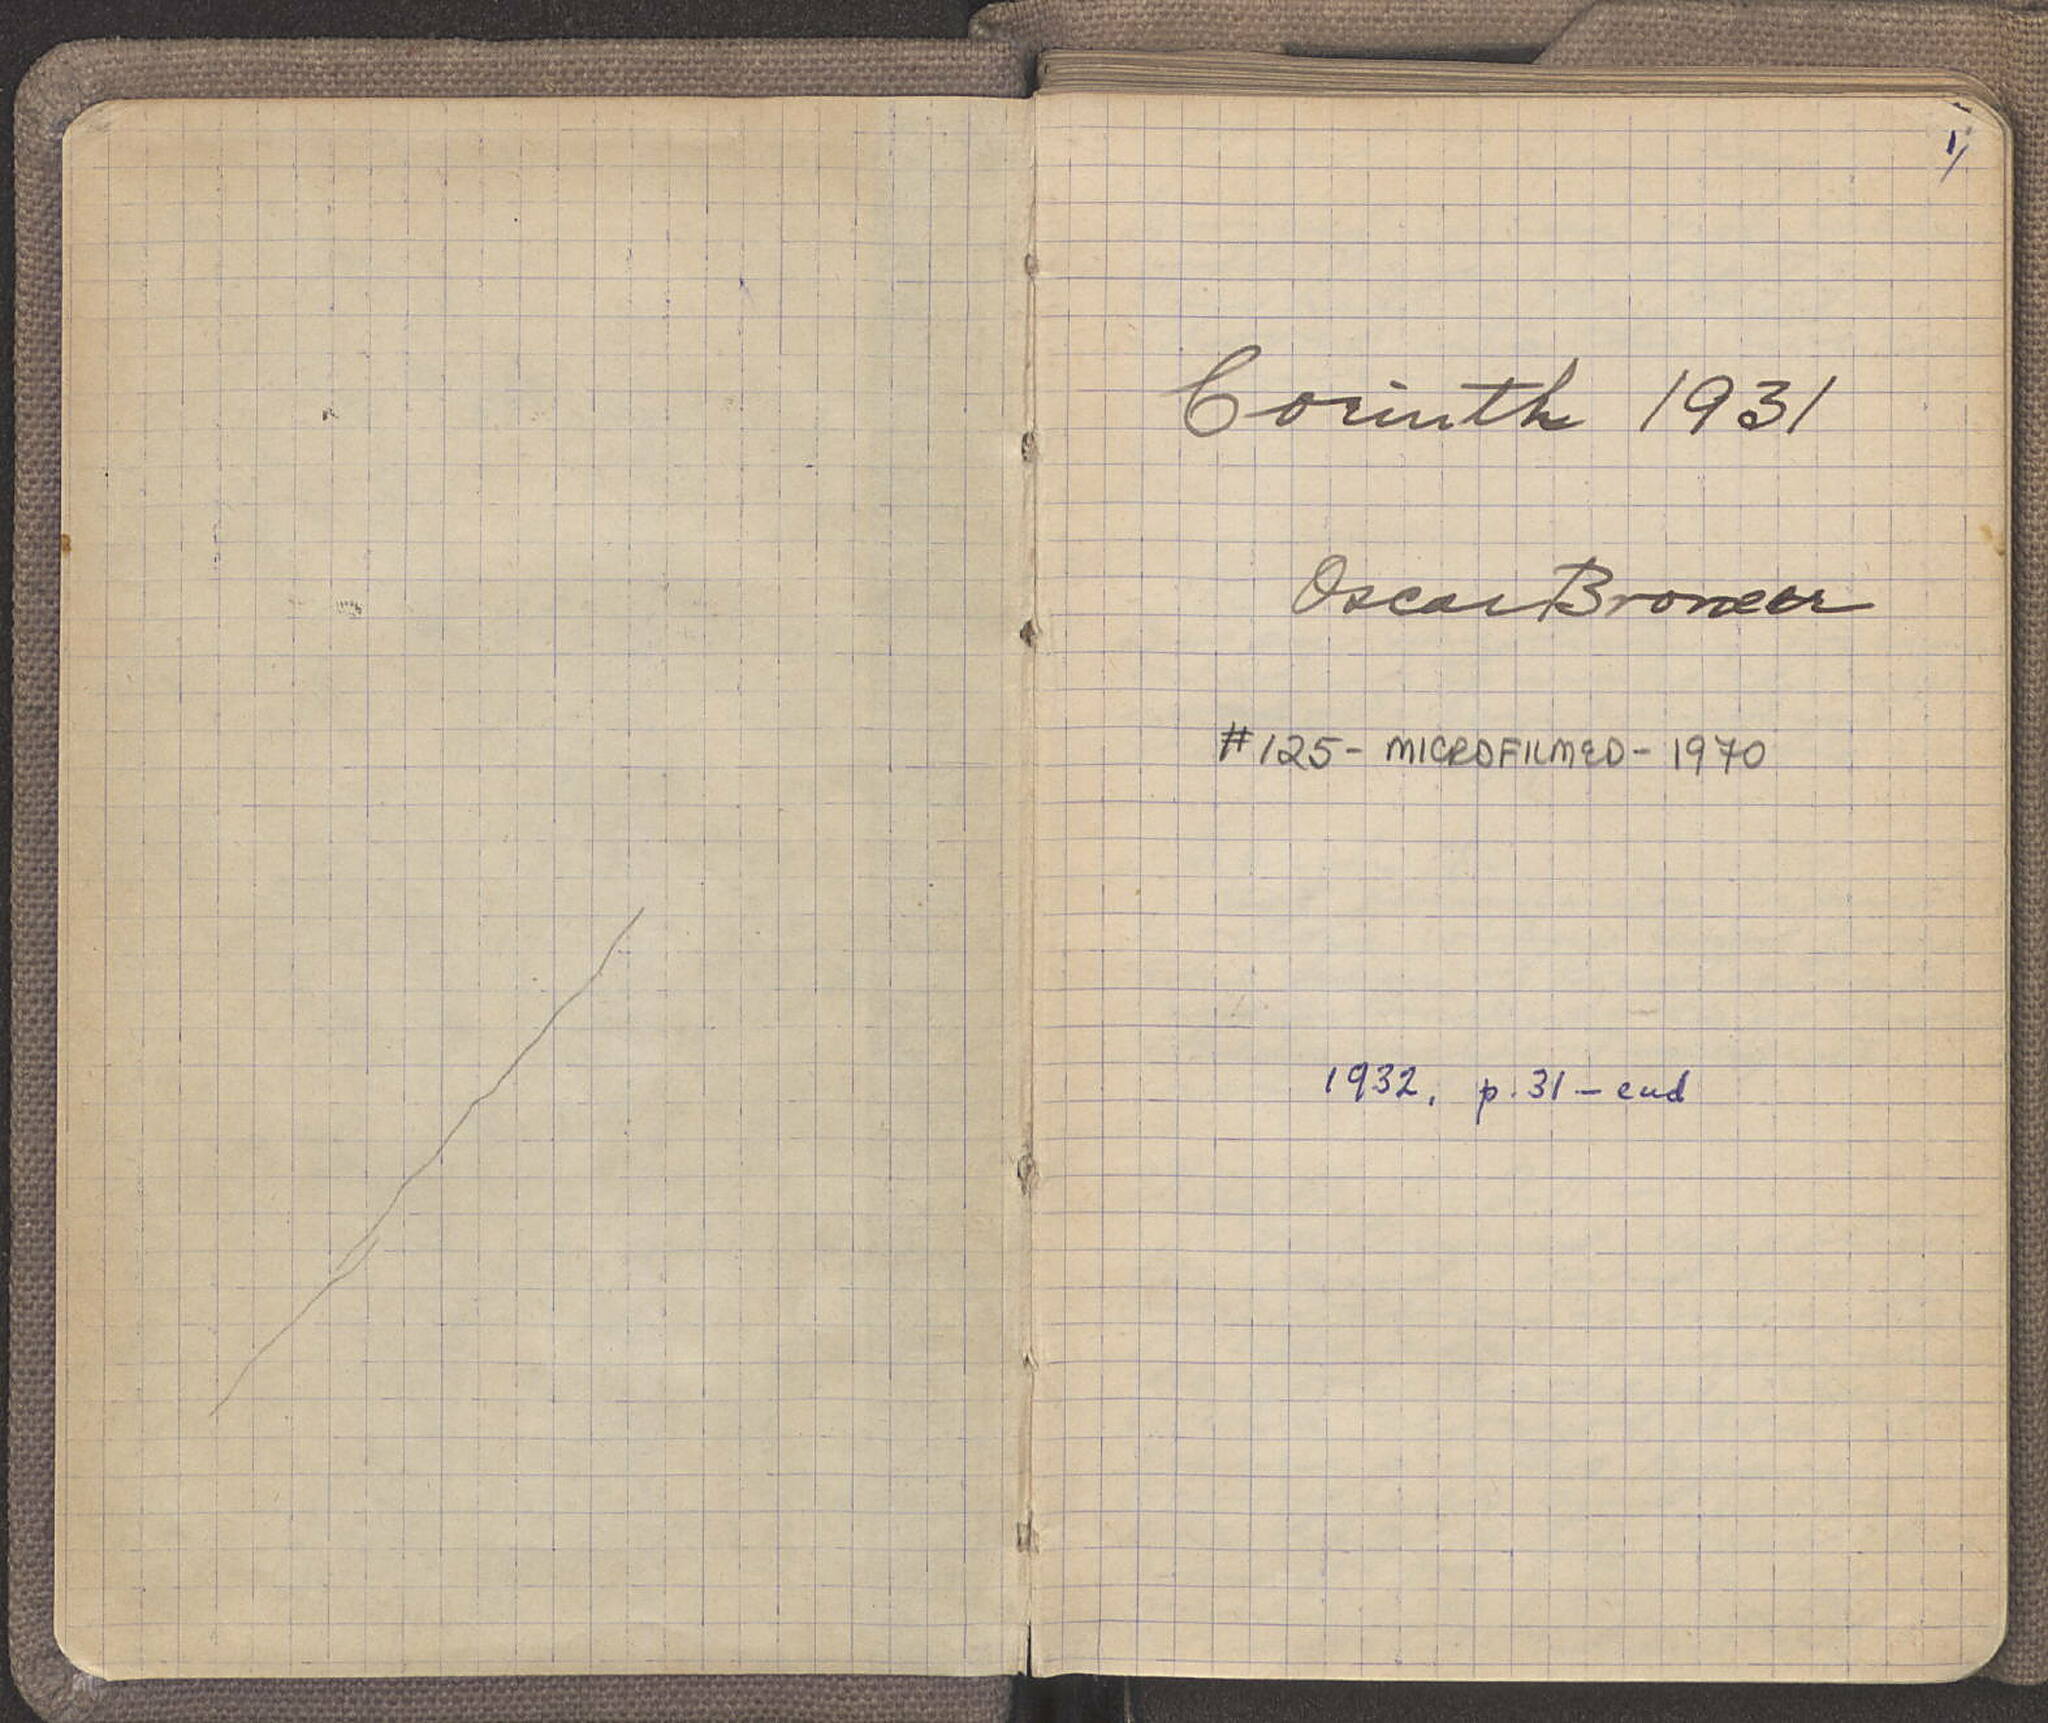 1/
Corinth 1931
Oscar Broneer
#125 - MICROFILMED - 1970
1932, p. 31 - end